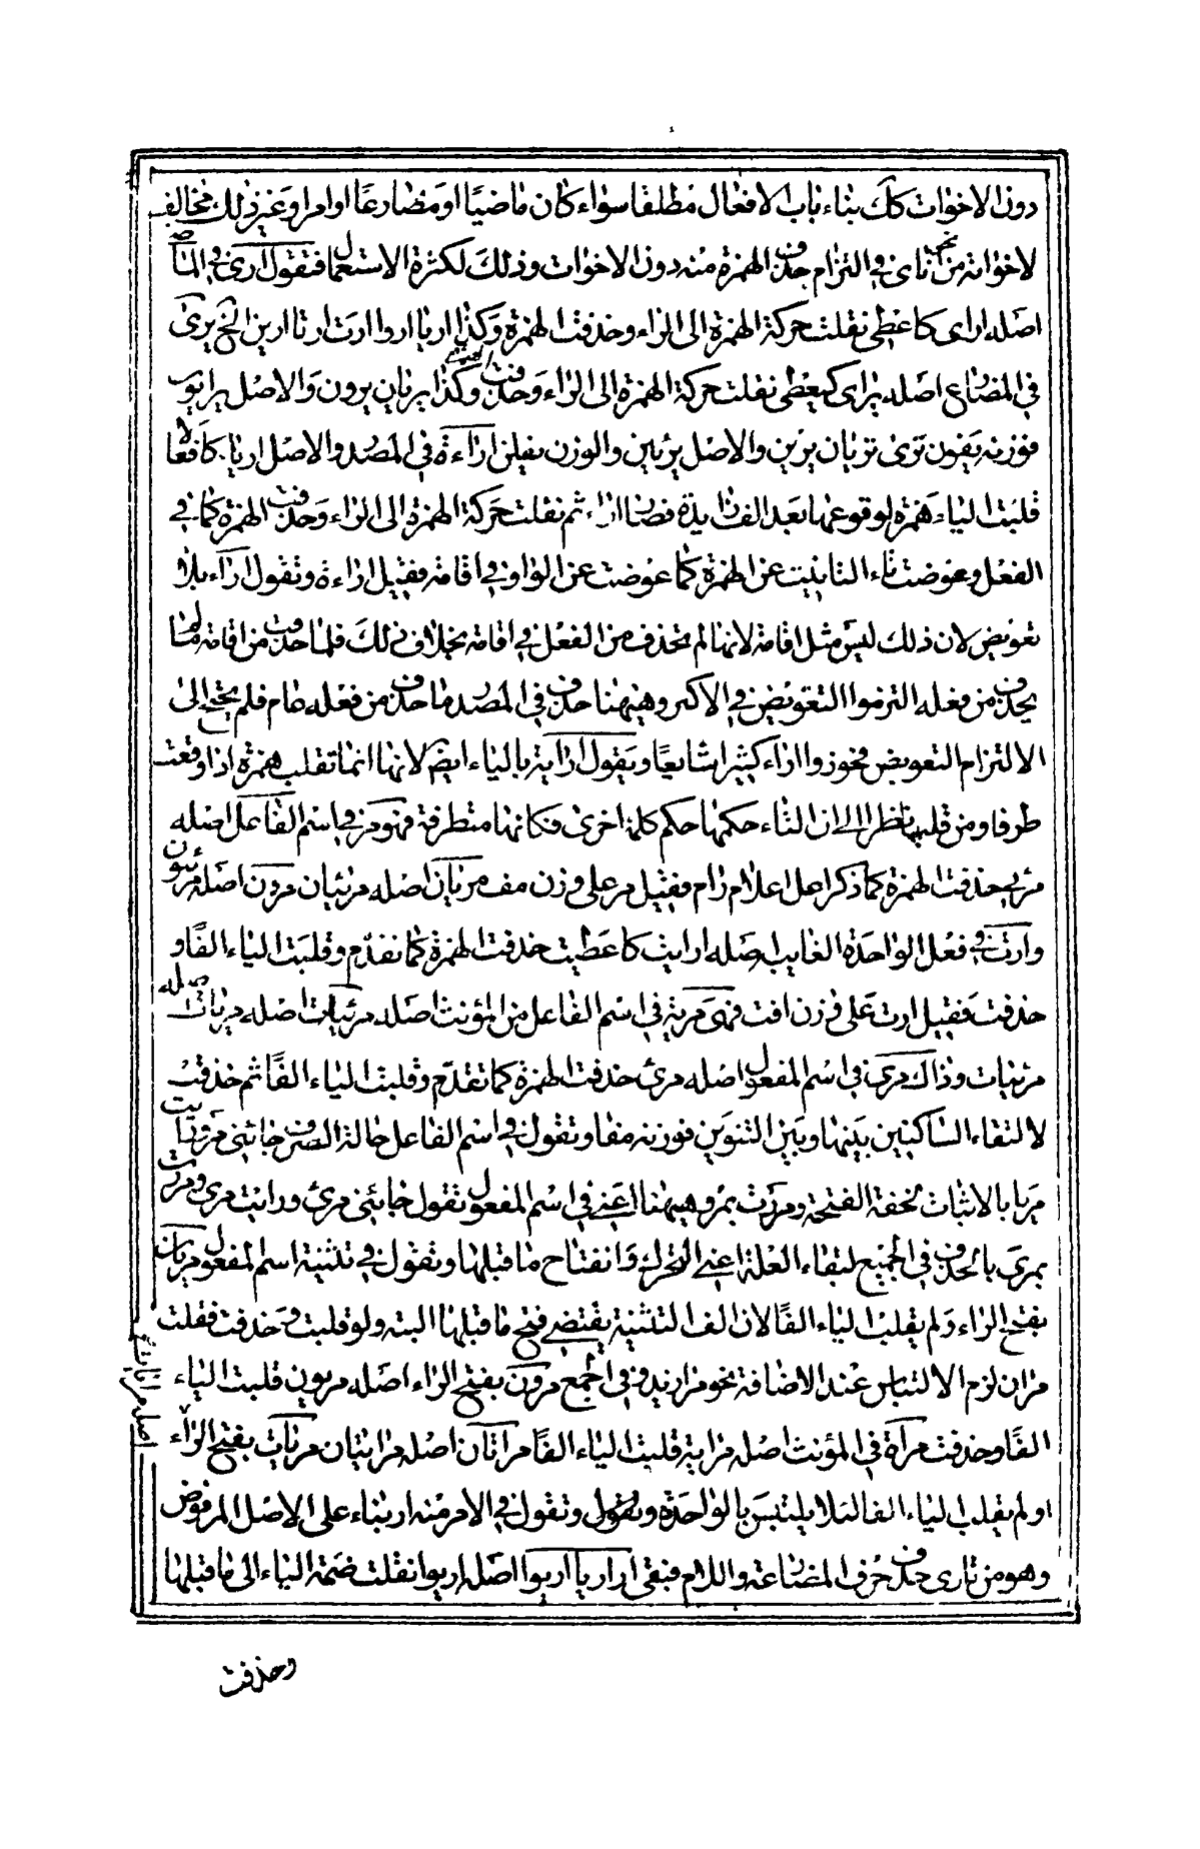 دون الاخوات كك بناء باب الافعال مطلقا سواء كان ماضيًا او مضارعًا او امرا وغير ذلك مخالف
لاخواته من نحو ناى فى التزام حذف الهمزة منه دون الاخوات وذلك لكثرة الاستعمال فتقول ارى فى الماضى
اصله اراى كاعطى نقلت حركة الهمزة الى الراء وحذفت الهمزة وكذا اريا اروا ارت ارتا ارين الخ يرى
فى المضارع اصله يراى كيعطى نقلت حركة الهمزة الى الراء وحذفت الهمزة وكذا يريان يرون والاصل يرايون
فوزنه يفون ترى تريان يرين والاصل يرئين والوزن يفلن اراءة فى المصدر والاصل ارياا كافعالا
قلبت الياء همزة لوقوعها بعد الف زايدة فصار ااراء ثم نقلت حركة الهمزة الى الراء وحذفت الهمزة كما فى
الفعل وعوضت تاء التانيث عن الهمزة كما عوضت عن الواو فى اقامة فقيل اراءة وتقول اراء بلا
تعويض لان ذلك ليس مثل اقامة لانها لم تحذف من الفعل فى اقامة بخلاف ذلك فلما حذفت من اقامة ما لم
يحذف من فعله التزموا التعويض فى الاكثر وهيهنا حذف فى المصدر ما حذف من فعله فلم يحتج الى
الالتزام التعويض فجوزوا اراء كثيرا شايعًا ويقول اراية بالياء ايضا لانها انما تقلب همزة اذا وقعت
طرفا ومن قلبها نظر الى ان التاء حكمها حكم كلمة اخرى فكانها متطرفة فهو مر فى اسم الفاعل اصله
مرئى حذفت الهمزة كما ذكر اعل اعلام رام فقيل مر على وزن مف مريان اصله مرئيان مرون اصله مرئيون
وارت فى فعل الواحدة الغايب اصله ارايت كاعطيت حذفت الهمزة كما تقدم وقلبت الياء الفًا و
حذفت فقيل ارت على وزن افت فهى مرية فى اسم الفاعل من المؤنث اصله مرئيات اصله مريات اصله
مرئيات وذاك مرى فى اسم المفعول اصله مرئ حذفت الهمزة كما تقدم وقلبت الياء الفًا ثم حذفت
لالتقاء الساكنين بينها وبين التنوين فوزنه مفا وتقول فى اسم الفاعل حالة الصرف جائنى مر ورايت
مريا بالاثبات لخفة الفتحة ومررت بمر وهيهنا اعنى فى اسم المفعول تقول جائنى مرى ورايت مرى ومررت
بمرى بالحذف فى الجميع لبقاء العلة اعنى التحرك وانفتاح ما قبلها وتقول فى تثنية اسم المفعول مريان
بفتح الراء ولم يقلب الياء الفًا لان الف التثنية يقتضى فتح ما قبلها البتة ولو قلبت وحذفت فقلت
مران لزم الالتباس عند الاضافة نحو مرا زيد وفى الجمع مرون بفتح الراء اصله مريون قلبت الياء
الفًا وحذفت مراة فى المؤنث اصله مراية قلبت الياء الفًا مراتان اصله مرايتان مريات بفتح الراء
اصله مرايات
ولم يقلب الياء الفا لئلا يلتبس بالواحدة وتقول فى الامر منه ار بناء على الاصل المرفوض
وهو من تارى حذف حرف المضارعة واللام فبقى ار اريا اريوا اصله اريوا نقلت ضمة الياء الى ما قبلها
وحذفت